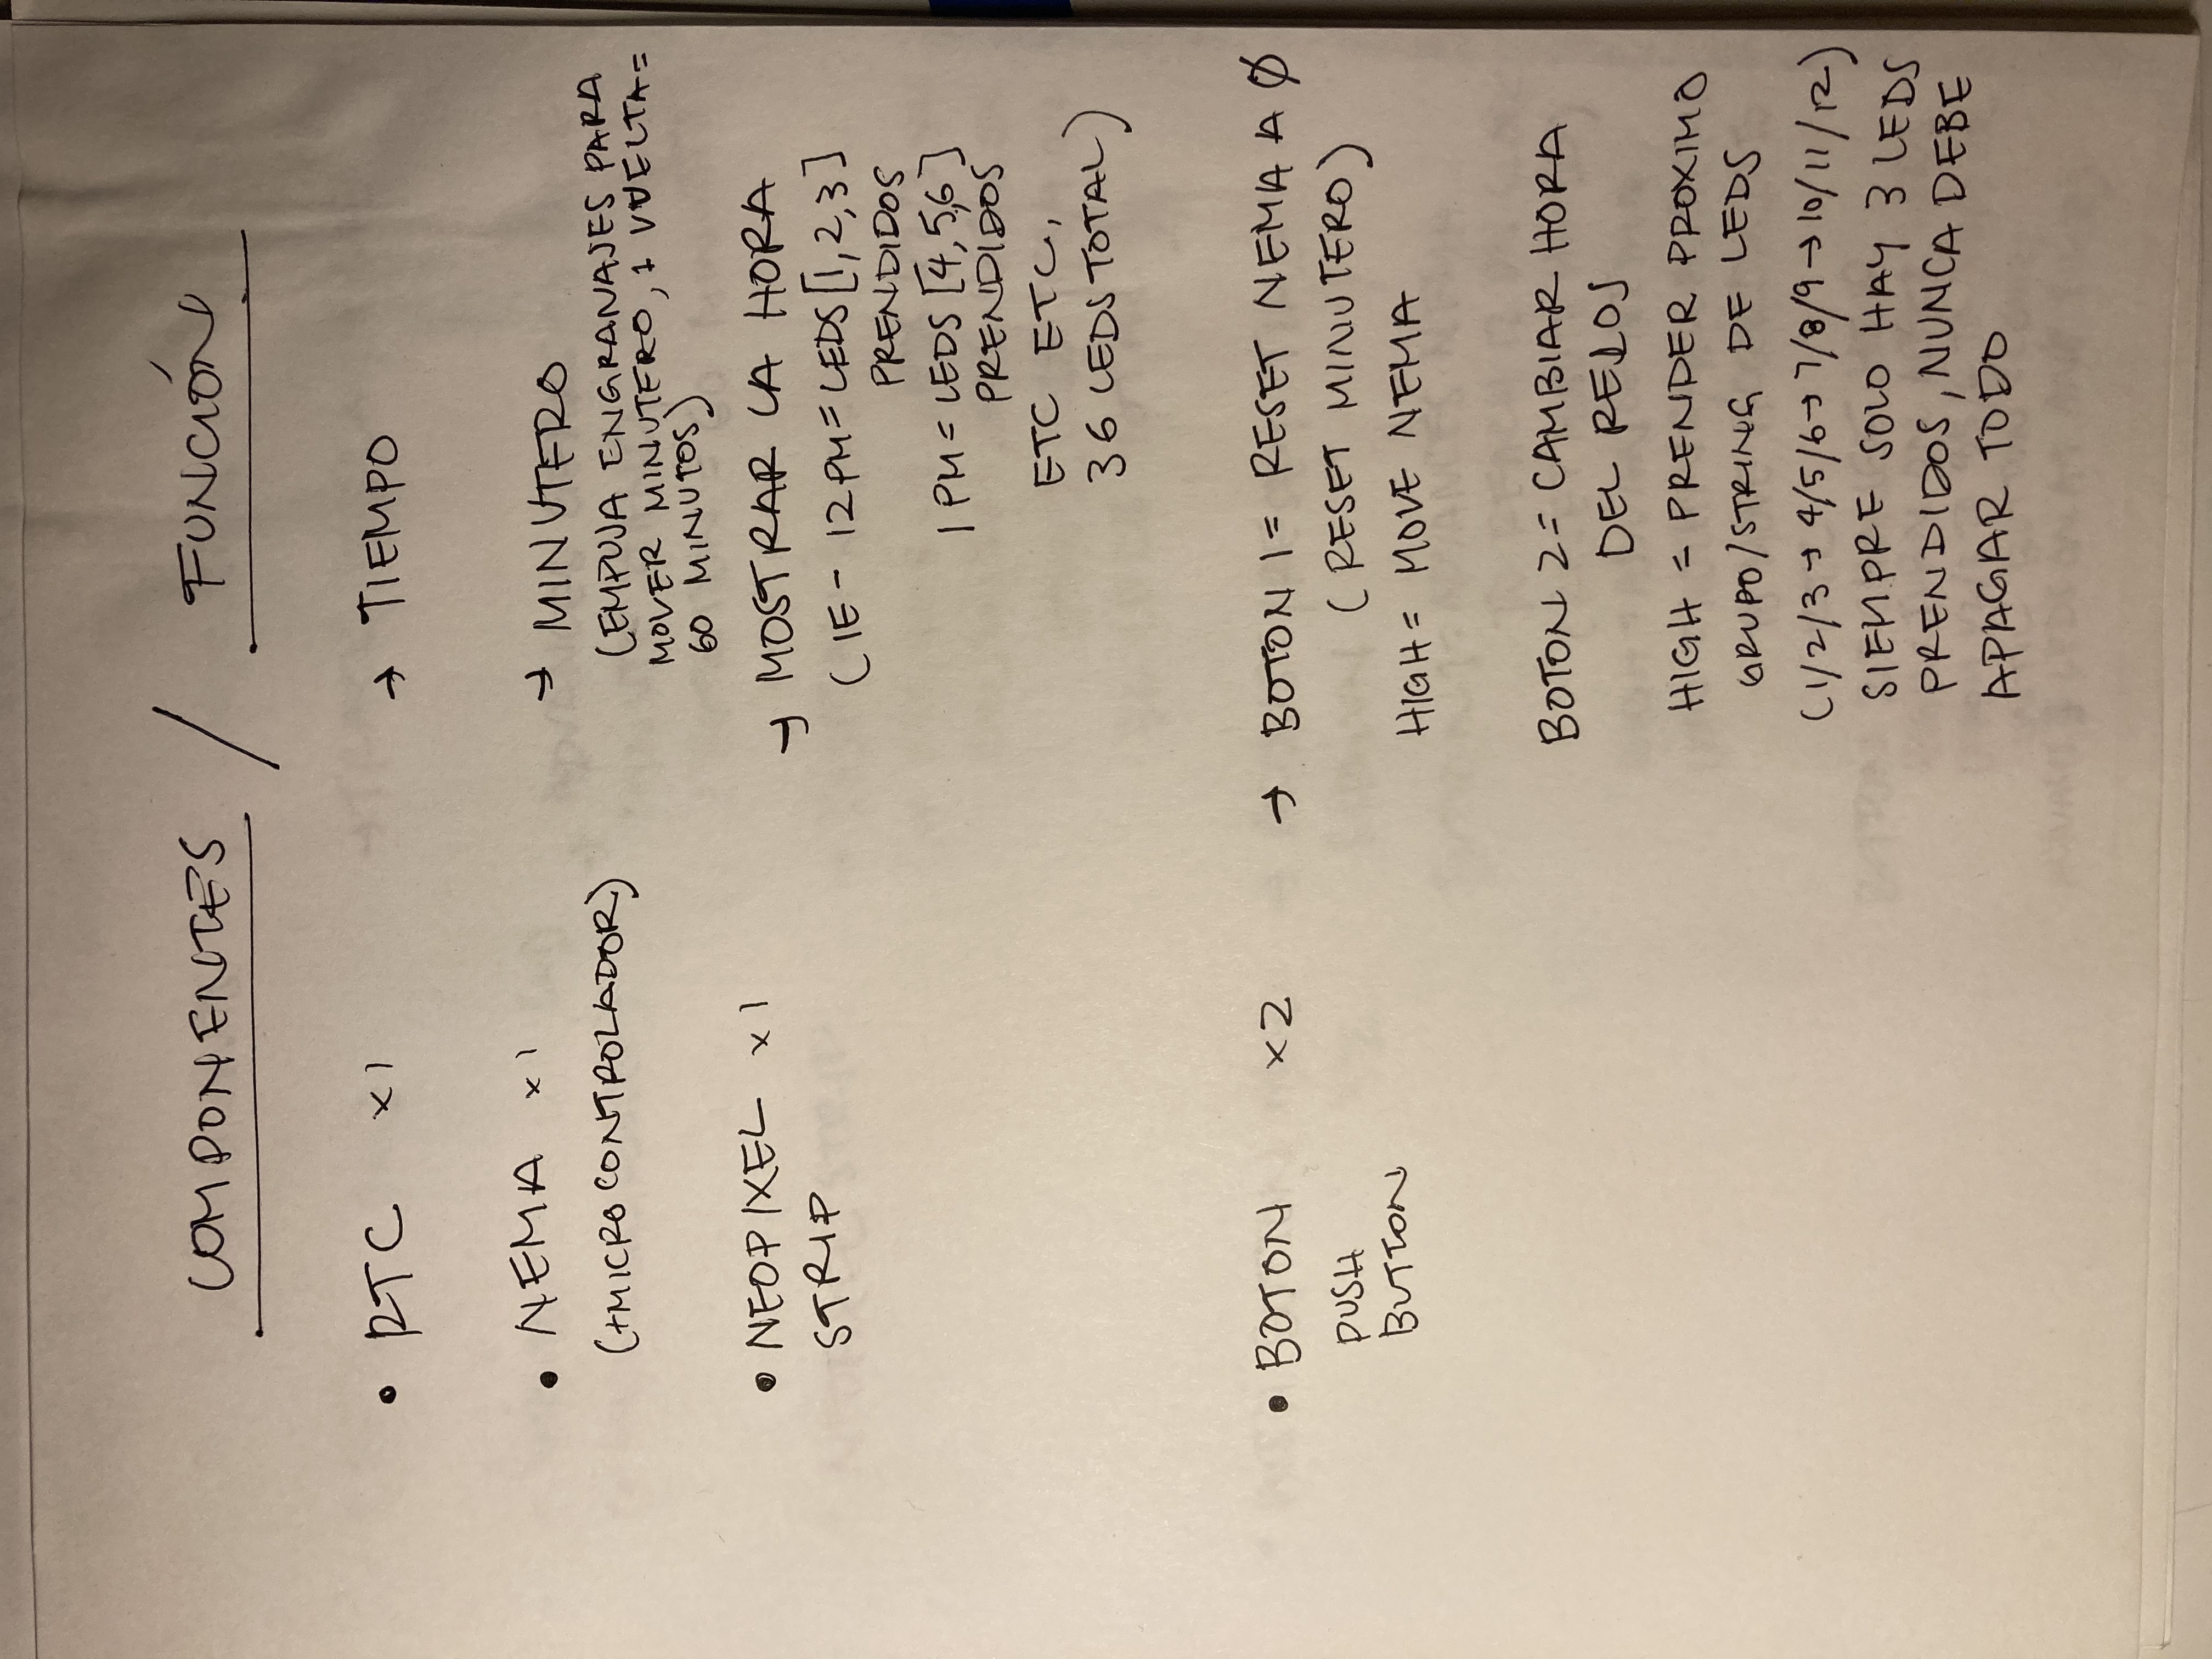 COMPONENTES / FUNCIÓN
• RTC x1 → TIEMPO
• NEMA x1 → MINUTERO
(+MICROCONTROLADOR) (EMPUJA ENGRANAJES PARA
MOVER MINUTERO, 1 VUELTA=
60 MINUTOS)
• NEOPIXEL x1 → MOSTRAR LA HORA
STRIP (IE - 12PM = LEDS [1,2,3]
PRENDIDOS
1 PM = LEDS [4,5,6]
PRENDIDOS
ETC ETC,
36 LEDS TOTAL)
• BOTON x2 → BOTON 1 = RESET NEMA A Ø
PUSH (RESET MINUTERO)
BUTTON HIGH = MOVE NEMA
BOTON 2 = CAMBIAR HORA
DEL RELOJ
HIGH = PRENDER PROXIMO
GRUPO/STRING DE LEDS
(1/2/3 → 4/5/6 → 7/8/9 → 10/11/12)
SIEMPRE SOLO HAY 3 LEDS
PRENDIDOS, NUNCA DEBE
APAGAR TODO